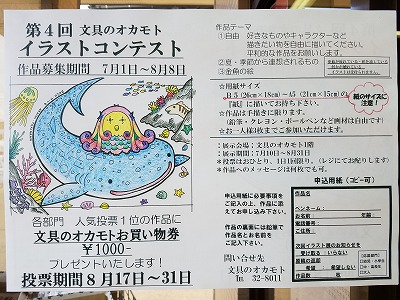 第4回 文具のオカモト
イラストコンテスト
作品募集期間 7月1日～8月8日
各部門 人気投票1位の作品に
文具のオカモトお買い物券
¥1000-
プレゼントいたします!
投票期間8月17日～31日
作品テーマ
①自由 好きなものやキャラクターなど
描きたい物を自由に描いてください。
平和的な作品をお願いします。
②夏・季節から連想されるもの
③金魚の絵
☆用紙サイズ
B5(26cm×18cm)～A5(21cm×15cm)の
『紙』に描いてお持ち下さい。
☆作品は手描きに限ります。
(鉛筆・クレヨン・ボールペンなど画材は自由です)
☆お一人様3枚までご参加いただけます。
紙のサイズに
注意!
:展示会場:文具のオカモト1階
:展示期間:7月10日～8月31日
*投票はおひとり、1日1回限り。(レジにてお配りします)
*作品へのメッセージは何枚でも可。
申込用紙に必要事項を
ご記入の上、作品に添
えてお申し込み下さい。
作品の裏面には鉛筆で
作品名とお名前を
ご記入ください。
問い合せ先
文具のオカモト
℡ 32-8011
申込用紙(コピー可)
作品名:
ペンネーム:
お名前: 年齢:
ご住所:
電話番号:
次回イラスト展のお知らせを
受け取る・いらない
郵送の返還
希望する・希望しない